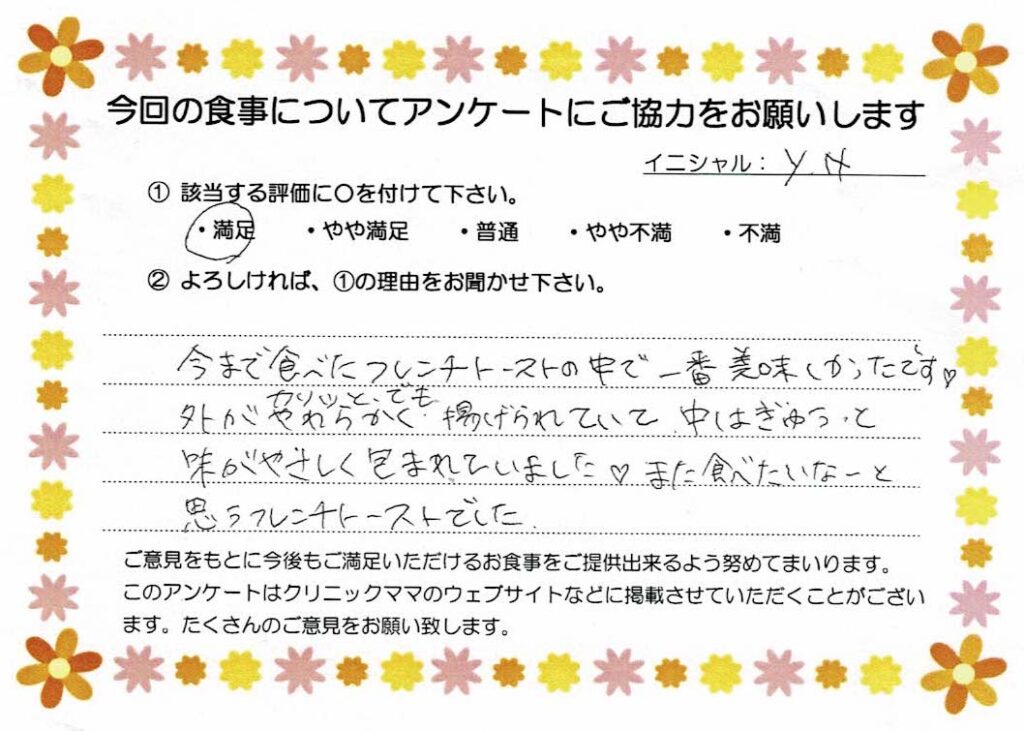 今回の食事についてアンケートにご協力をお願いします
イニシャル： Y.N
① 該当する評価に○を付けて下さい。
・満足 ・やや満足 ・普通 ・やや不満 ・不満
② よろしければ、①の理由をお聞かせ下さい。
今まで食べたフレンチトーストの中で一番美味しかったです♡
カリッと、でも
外がやわらかく 揚げられていて 中はぎゅうっと
味がやさしく包まれていました♡ また食べたいなーと
思うフレンチトーストでした。
ご意見をもとに今後もご満足いただけるお食事をご提供出来るよう努めてまいります。
このアンケートはクリニックママのウェブサイトなどに掲載させていただくことがござい
ます。たくさんのご意見をお願い致します。